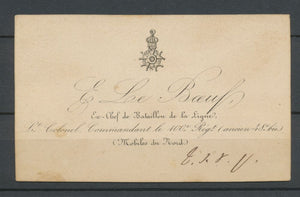 E Le Bœuf
Ex-Chef de Bataillon de la Ligne,
Lt. Colonel Commandant le 106e Régt (ancien 4e bis)
(Mobiles du Nord)